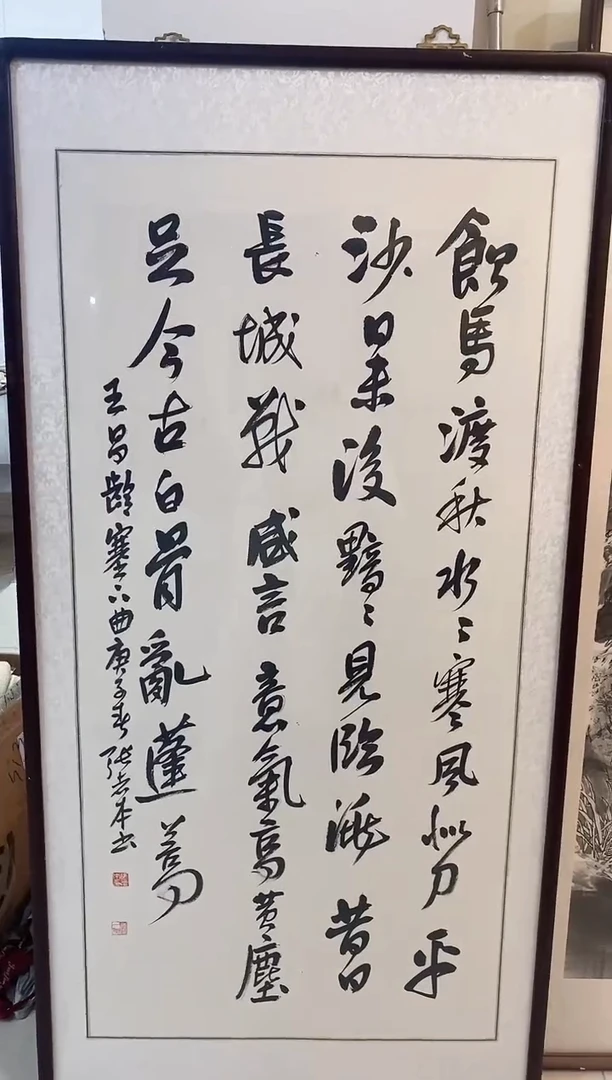 飲馬渡秋水〻寒風似刀平
沙日未没黯〻見臨洮昔日
長城戰咸言意氣高黄塵
足今古白骨亂蓬蒿
王昌齡塞下曲庚子春張志本书